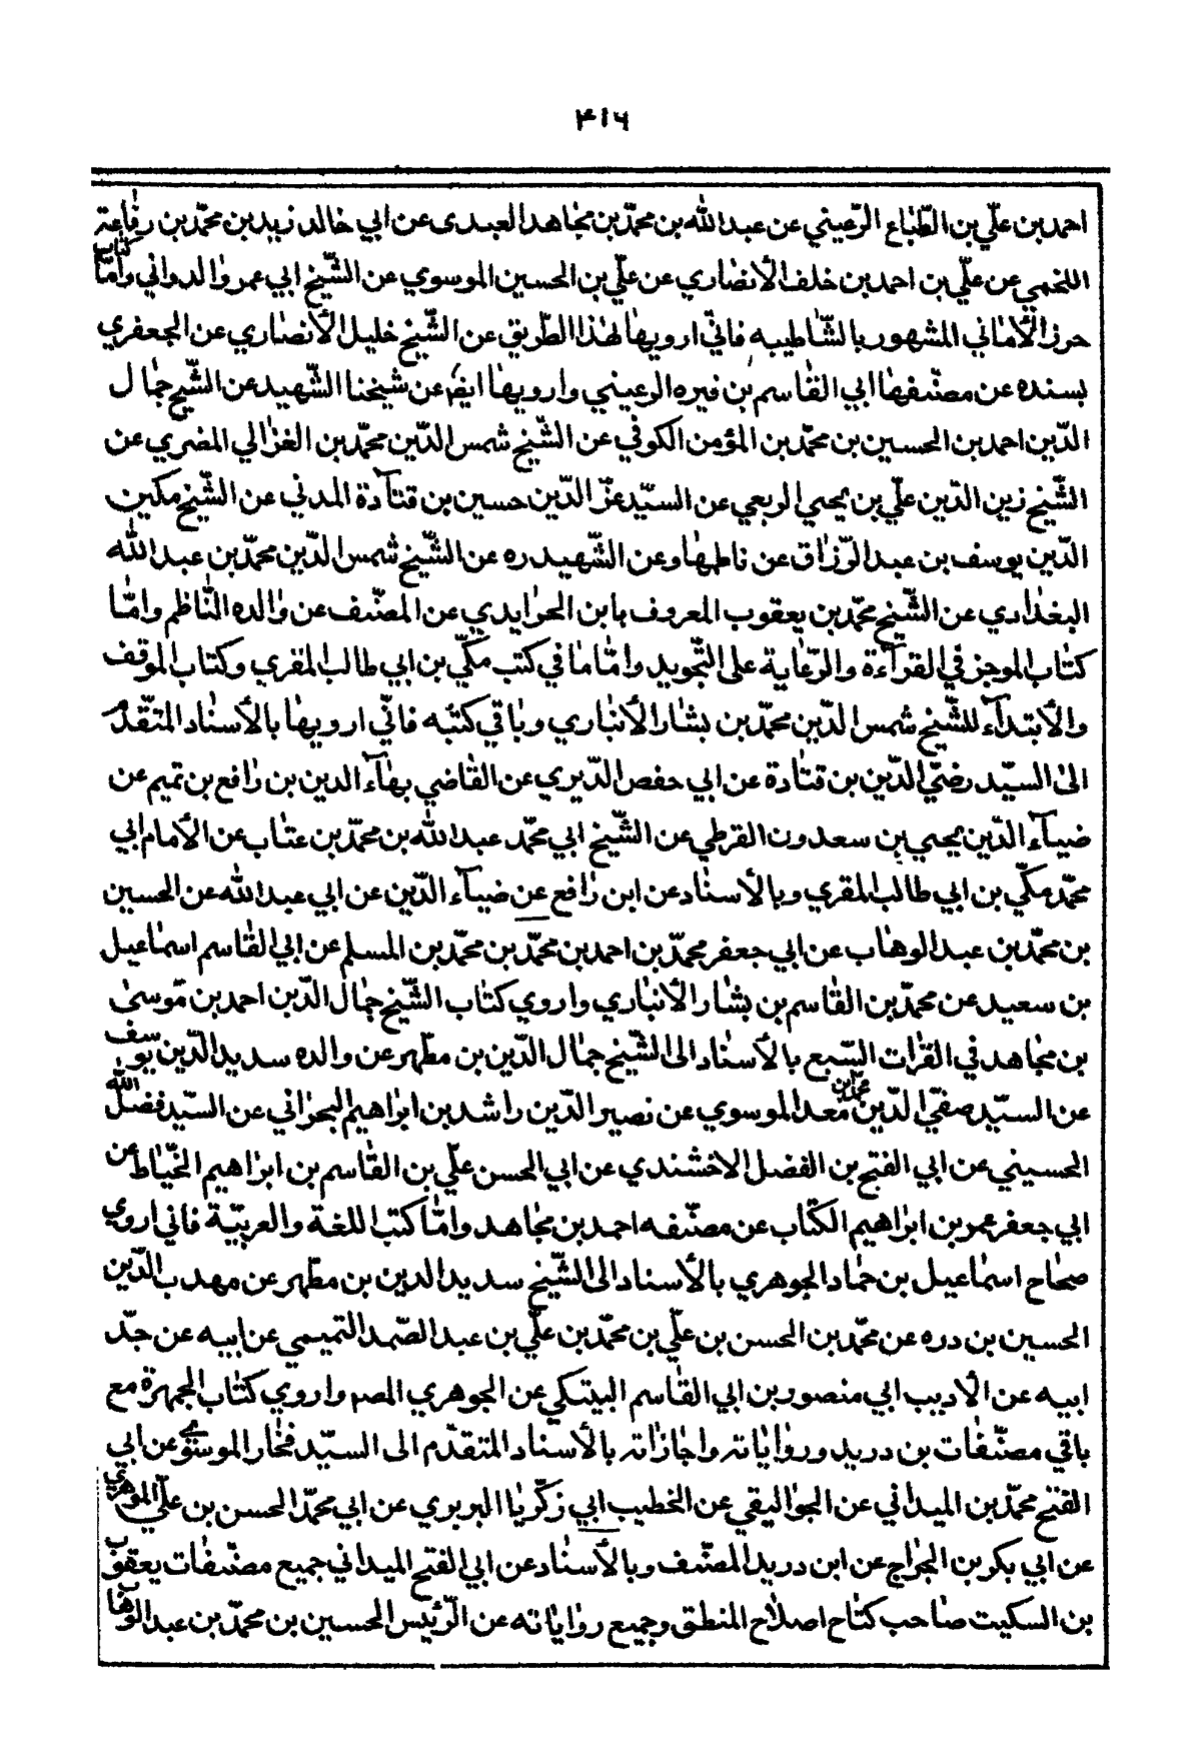 ٤١٦
احمد بن علّي بن الطّباع الرّعيني عن عبد الله بن محمّد بن مجاهد العبدى عن ابي خالد زيد بن محمّد بن رفاعة
اللخمي عن علّي بن احمد بن خلف الأنصاري عن علّي بن الحسين الموسوي عن الشّيخ ابي عمرو الدواني وامّا كتاب
حرز الأماني المشهور بالشّاطيبه فانّي ارويها لهذا الطّريق عن الشّيخ خليل الأنصاري عن الجعفري
بسنده عن مصنّفها ابي القاسم بن فيره الرعيني وارويها ايضا عن شيخنا الشّهيد عن الشّيخ جمال
الدّين احمد بن الحسين بن محمّد بن المؤمن الكوفي عن الشّيخ شمس الدّين محمّد بن الغزالي المضري عن
الشّيخ زين الدّين علّي بن يحيي الربعي عن السيّد عزّ الدّين حسين بن قتادة المدني عن الشّيخ مكين
الدّين يوسف بن عبد الرّزاق عن ناظمها وعن الشّهيد ره عن الشّيخ شمس الدّين محمّد بن عبد الله
البغدادي عن الشّيخ محمّد بن يعقوب المعروف بابن الحرايدي عن المصنّف عن والده النّاظم وامّا
كتاب الموجز في القراءة والرّعاية على التّجويد وامّا ما في كتب مكّي بن ابي طالب المقري وكتاب الموقف
والأبتداء للشّيخ شمس الدّين محمّد بن بشار الأنباري وباقي كتبه فانّي ارويها بالأسناد المتقدّم
الى السيّد رضيّ الدّين بن قتادة عن ابي حفص الدّيري عن القاضي بهاء الدين بن رافع بن تميم عن
ضياء الدّين يحيي بن سعدون القرطي عن الشّيخ ابي محمّد عبد الله بن محمّد بن عتاب عن الأمام ابي
محمّد مكّي بن ابي طالب المقري وبالأسناد عن ابن رافع عن ضياء الدّين عن ابي عبد الله عن الحسين
بن محمّد بن عبد الوهاب عن ابي جعفر محمّد بن احمد بن محمّد بن محمّد بن المسلم عن ابي القاسم اسماعيل
بن سعيد عن محمّد بن القاسم بن بشار الأنباري واروي كتاب الشّيخ جمال الدّين احمد بن موسى
بن مجاهد في القرات السّبع بالأسناد الى الشّيخ جمال الدّين بن مطّهر عن والده سديد الدّين يوسف
عن السيّد صفيّ الدّين محمّد بن معد الموسوي عن نصير الدّين راشد بن ابراهيم البحراني عن السيّد فضل الله
الحسيني عن ابي الفتح بن الفضل الاخشندي عن ابي الحسن علّي بن القاسم بن ابراهيم الخيّاط عن
ابي جعفر عمر بن ابراهيم الكتّاب عن مصنّفه احمد بن مجاهد وامّا كتب اللغة والعربيّة فاني اروي
صحاح اسماعيل بن حماد الجوهري بالأسناد الى الشّيخ سديد الدين بن مطّهر عن مهدب الدّين
الحسين بن دره عن محمّد بن الحسن بن علّي بن محمّد بن علّي بن عبد الصّمد التميمي عن ابيه عن جدّ
ابيه عن الأديب ابي منصور بن ابي القاسم البيتكي عن الجوهري المص واروي كتاب الجمهرة مع
باقي مصنّفات بن دريد ورواياته واجازاته بالأسناد المتقدّم الى السيّد فخار الموسوي عن ابي
الفتح محمّد بن الميداني عن الجواليقي عن الخطيب ابي زكّريا البربري عن ابي محمّد الحسن بن علّي الموهري
عن ابي بكر بن الجراج عن ابن دريد المصنّف وبالأسناد عن ابي الفتح الميداني جميع مصنّفات يعقوب
بن السكيت صاحب كتاح اصلاح المنطق وجميع رواياته عن الرّئيس الحسين بن محمّد بن عبد الوهاب